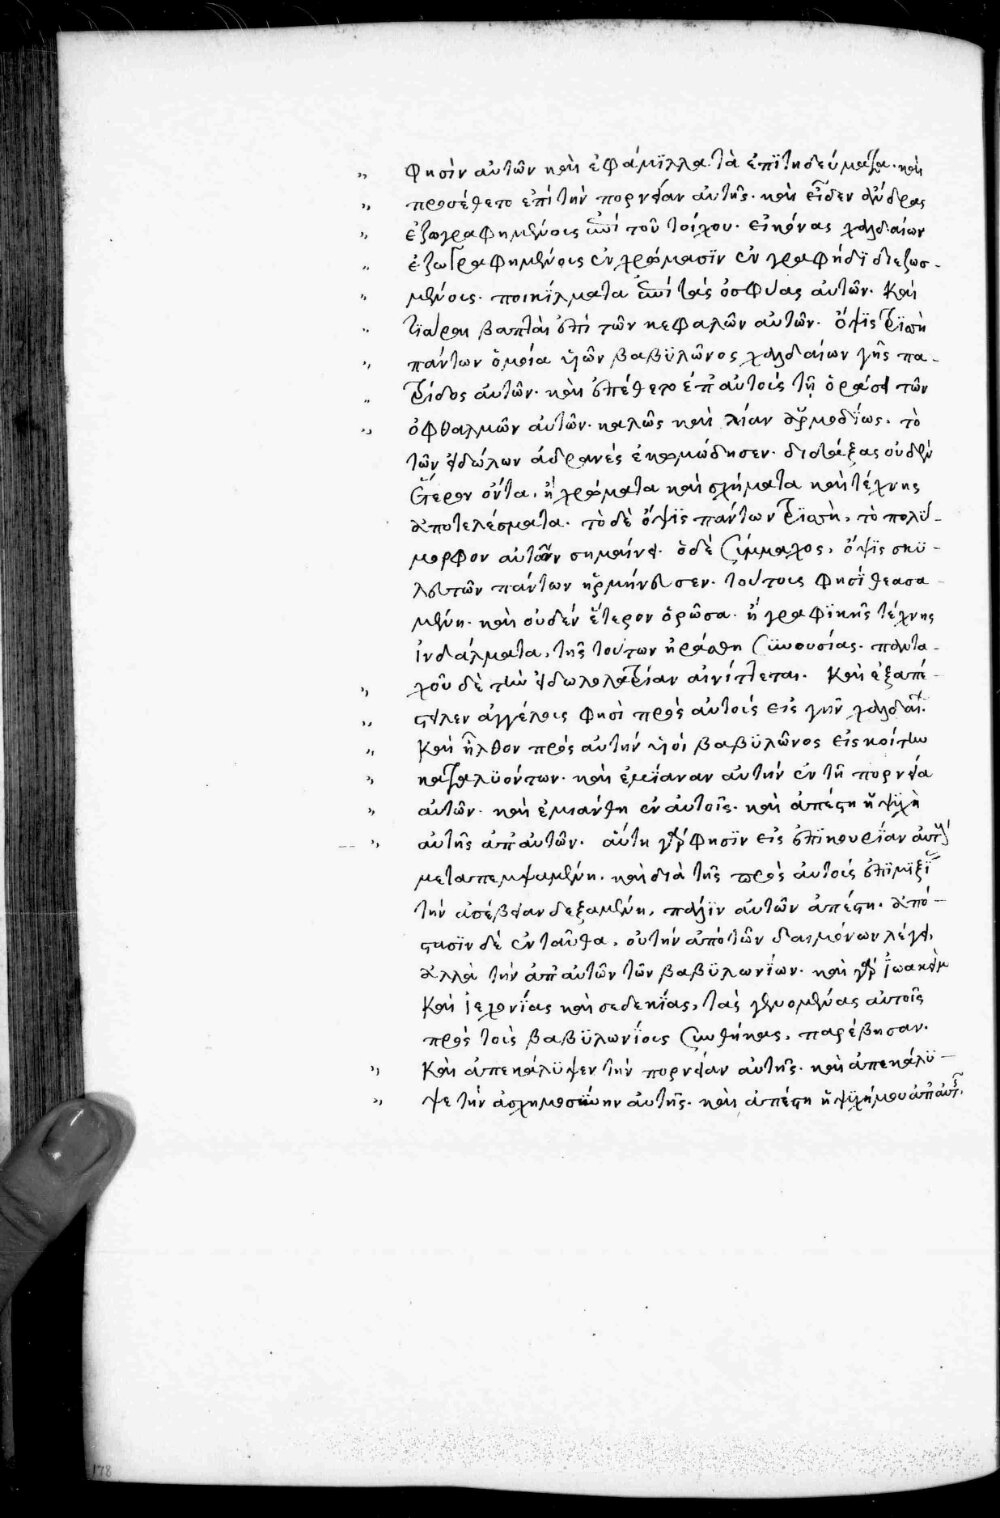 φησὶν αὐτῶν καὶ ἐφάμϊλλα τὰ ἐπϊτηδεύματα. καὶ
προσέθετο ἐπὶ τὴν πορνείαν αὐτῆς. καὶ εἶδεν ἄνδρας
ἐζωγραφημένους ἐπὶ τοῦ τοίχου. εἰκόνας χαλδαίων
ἐζωγραφημένους ἐν χρώμασϊν ἐν γραφήδϊ διεζωσ-
μένους. ποικίλματα ἐπὶ τὰς ὀσφύας αὐτῶν. Καὶ
τιάραι βαπταὶ ἐπὶ τῶν κεφαλῶν αὐτῶν. ὄψϊς τρϊσσὴ
πάντων ὁμοία υἱῶν βαβϋλῶνος χαλδαίων γῆς πα-
τρίδος αὐτῶν. καὶ ἐπέθετο ἐπ' αὐτοὺς τῇ ὁράσει τῶν
ὀφθαλμῶν αὐτῶν. καλῶς καὶ λίαν ἁρμοδΐως. τὸ
τῶν εἰδώλων ἀδρανὲς ἐκωμώδησεν. διδάξας οὐδὲν
ἕτερον ὄντα, ἢ χρώματα καὶ σχήματα καὶ τέχνης
ἀποτελέσματα. τὸ δὲ ὄψϊς πάντων τρϊσσὴ, τὸ πολύ-
μορφον αὐτῶν σημαίνει. ὁ δὲ Σύμμαχος, ὄψϊς σκϋ-
λευτῶν πάντων ἡρμήνευσεν. τούτους φησὶ θεασα-
μένη. καὶ οὐδὲν ἕτερον ὁρῶσα. ἢ γραφϊκῆς τέχνης
ἰνδάλματα, τῆς τούτων ἠράσθη Συνουσίας. παντα-
χοῦ δὲ τὴν εἰδωλολατρείαν αἰνίττεται. Καὶ ἐξαπέ-
στειλεν ἀγγέλους φησὶ πρὸς αὐτοὺς εἰς γῆν χαλδαί.
Καὶ ἦλθον πρὸς αὐτὴν υἱοὶ βαβϋλῶνος εἰς κοίτην
καταλϋόντων. καὶ ἐμίαναν αὐτὴν ἐν τῇ πορνεία
αὐτῶν. καὶ ἐμιάνθη ἐν αὐτοῖς. καὶ ἀπέστη ἡ ψϋχὴ
αὐτῆς ἀπ' αὐτῶν. αὕτη γάρ φησϊν εἰς ἐπϊκουρΐαν αὐτοὺς
μεταπεμψαμένη. καὶ διὰ τῆς πρὸς αὐτοὺς ἐπϊμϊξΐας
τὴν ἀσέβειαν δεξαμένη, πάλϊν αὐτῶν ἀπέστη. ἀπό-
στασϊν δὲ ἐνταῦθα, οὐ τὴν ἀπὸ τῶν δαιμόνων λέγει,
ἀλλὰ τὴν ἀπ' αὐτῶν τῶν βαβϋλωνΐων. καὶ γὰρ ἰωακεὶμ
Καὶ ἰεχονΐας καὶ σεδεκΐας, τὰς γενομένας αὐτοῖς
πρὸς τοὺς βαβϋλωνΐους Συνθήκας, παρέβησαν.
Καὶ ἀπεκάλϋψεν τὴν πορνείαν αὐτῆς. καὶ ἀπεκάλϋ-
ψε τὴν ἀσχημοσύνην αὐτῆς. καὶ ἀπέστη ἡ ψϋχή μου ἀπ' αὐτῆς.
178